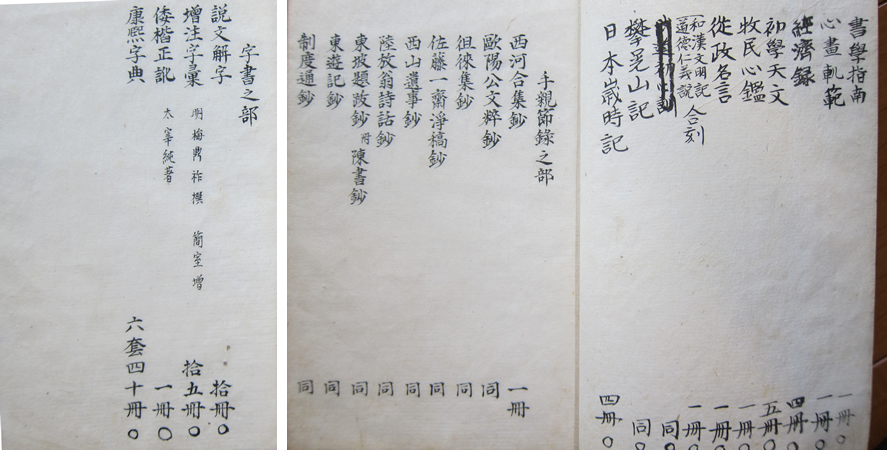 書學指南 一冊○
心畫軌範 一冊○
經濟錄 四冊○
初學天文 五冊○
牧民心鑑 一冊○
從政名言 一冊○
和漢文明記 道德仁義説 合刻 一冊○
同○
攀晃山記 同○
日本歲時記 四冊○
手親節錄之部
西河合集鈔 一冊
歐陽公文粹鈔 同
徂徠集鈔 同
佐藤一齋淨稿鈔 同
西山遺事鈔 同
陸放翁詩話鈔 同
東坡題跋鈔 附陳書鈔 同
東遊記鈔 同
制度通鈔 同
字書之部
説文解字 拾冊○
增注字彙 明梅膺祚撰 簡室增 拾五冊○
倭楷正訛 太宰純著 一冊○
康熙字典 六套四十冊○